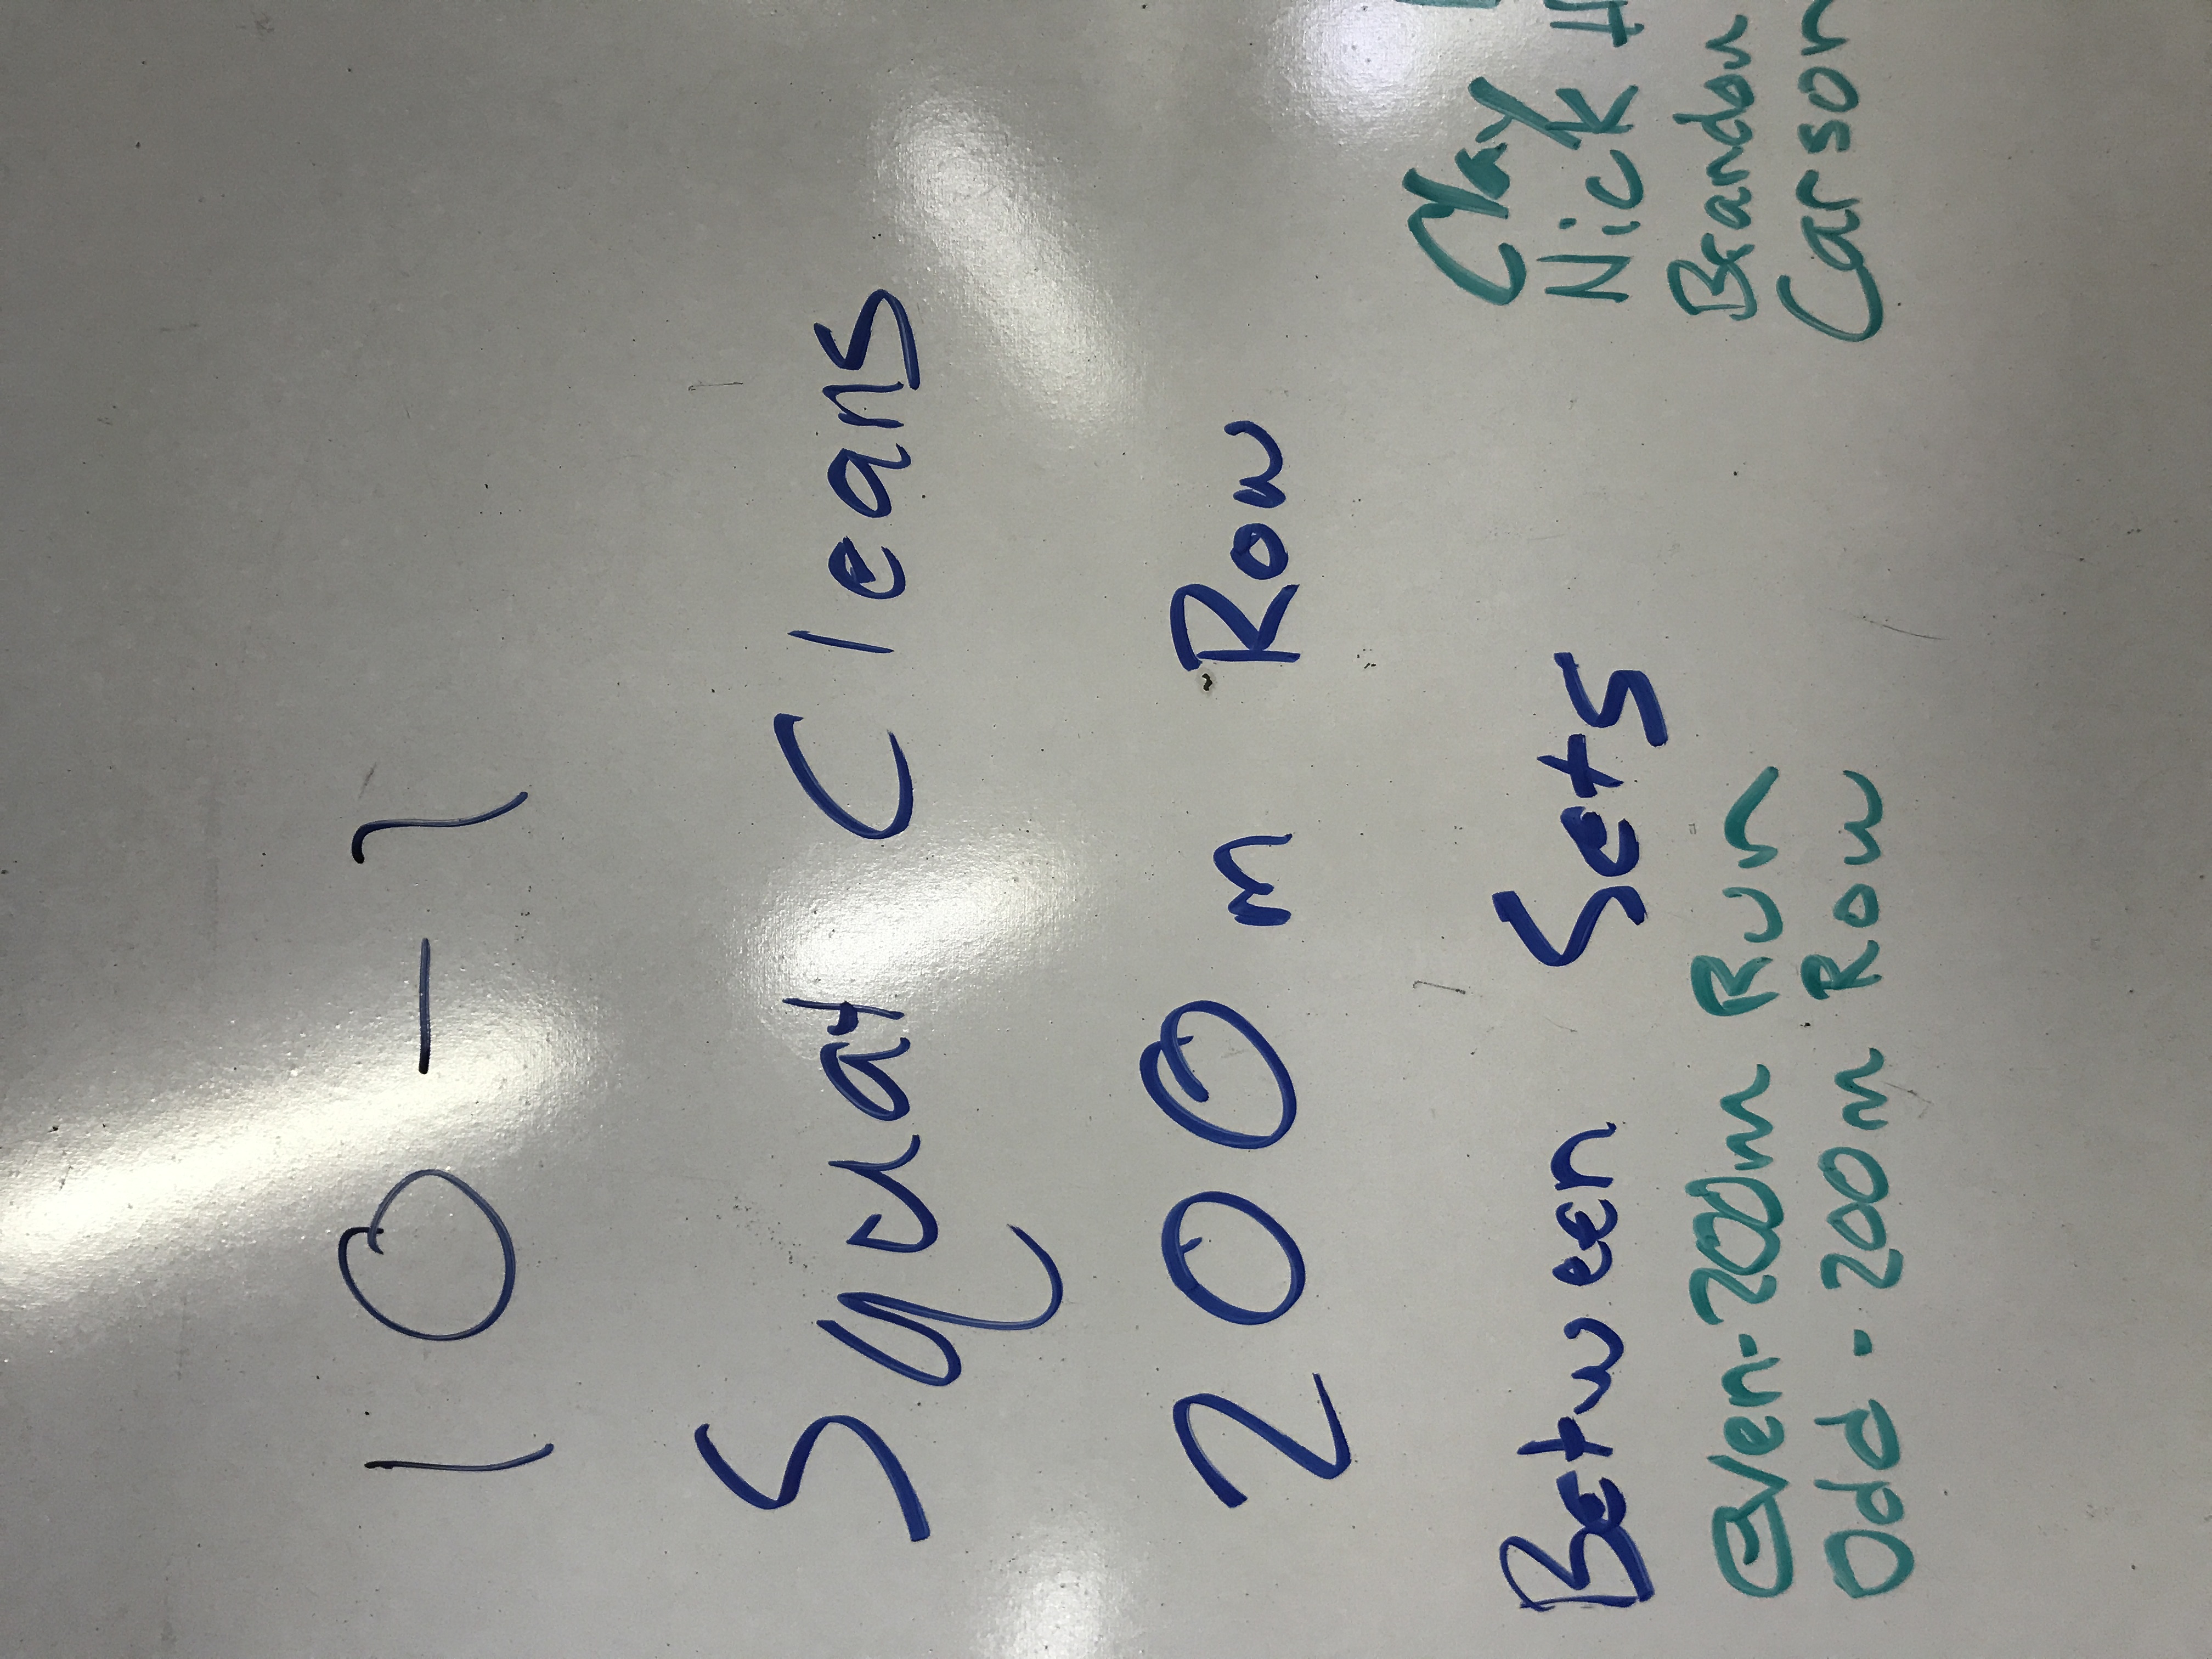 10 - 1
Squat Cleans
200 m Row
Between Sets
Even - 200m Run
Odd - 200m Row
Clay
Nick
Brandon
Carson